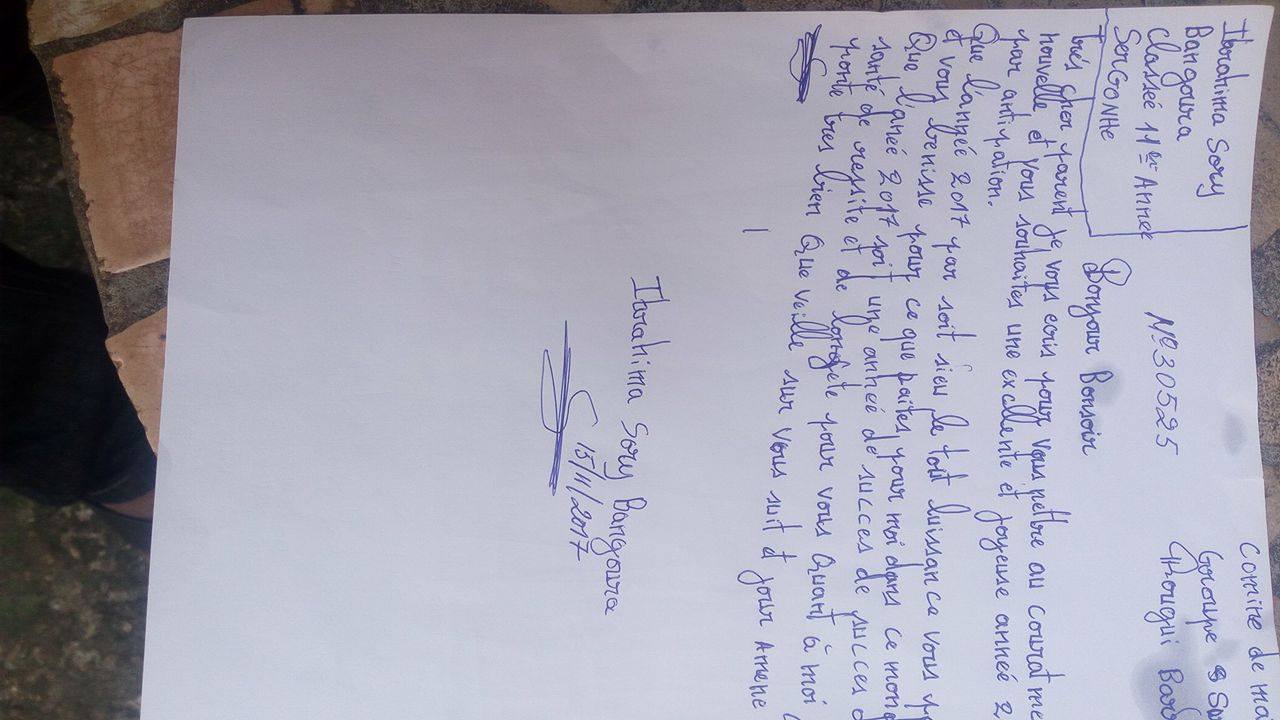 Ibrahima Sory
Bangoura
Classeé 11ère Anneé
SerGONHe
N° 30525
Comine de ma
Groupe
Bonjour Bonsoir
très cher parent je vous ecris pour vous mettre au courat me
nouvelle et vous souhaites une excellente et joyeuse anneé 2
par anticipation.
Que l'anneé 2017 par soit sieu le tout luissance vous
et vous benisse pour ce que paites pour moi dans ce mon
Que l'aneé 2017 soi une anneé de succes de succes d
santé de reusite et de longete pour vous Quant à moi
ponte tres bien Que veille sur vous nuit d jour Amene
Ibrahima Sory Bangoura
15/11/2017